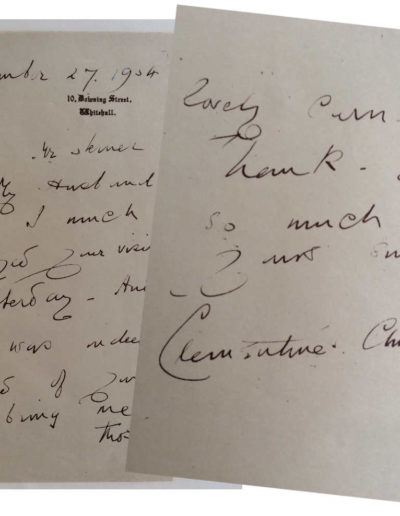 mber 27. 1954
10, Downing Street,
Whitehall.
Mr Skinner
My Husband
I much
yed your visi
terday - An
was indee
d of you
bring me
tho
lovely
Thank -
so much
yours
Clementine. Chu